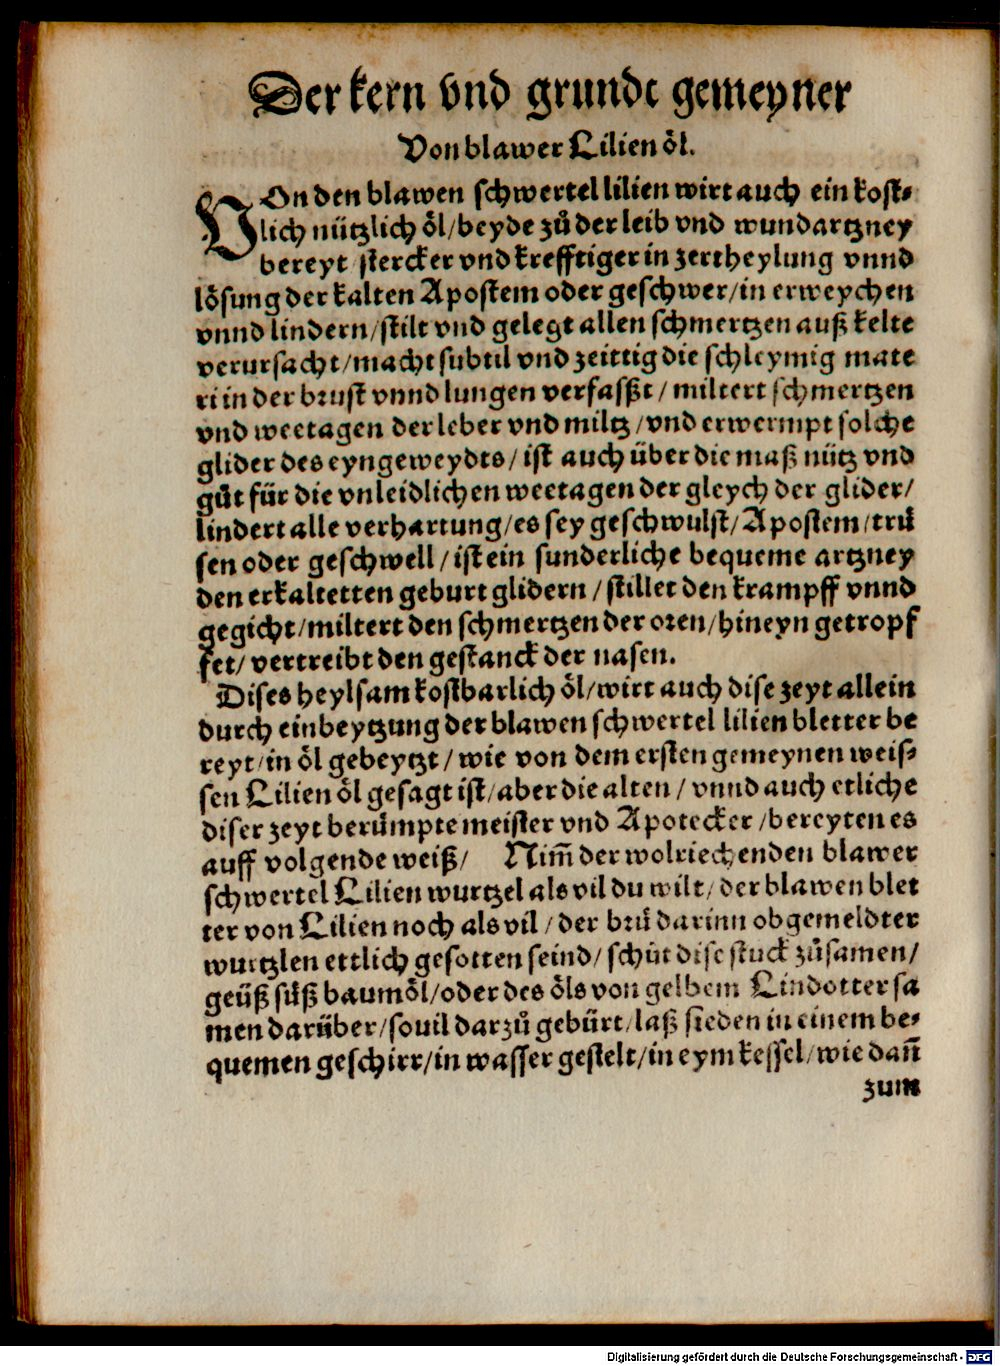 Der kern vnd grundt gemeyner
Von blawer Lilien öl.
VOn den blawen schwertel lilien wirt auch ein kost⸗
lich nützlich öl/beyde zů der leib vnd wundartzney
bereyt stercker vnd krefftiger in zertheylung vnnd
lösung der kalten Apostem oder geschwer/in erweychen
vnnd lindern/stilt vnd gelegt allen schmertzen auß kelte
verursacht/macht subtil vnd zeittig die schleymig mate
ri in der brust vnnd lungen verfasßt/ miltert schmertzen
vnd weetagen der leber vnd miltz/vnd erwermpt solche
glider des eyngeweydts/ ist auch über die maß nütz vnd
gůt für die vnleidlichen weetagen der gleych der glider/
lindert alle verhartung/es sey geschwulst/Apostem/trů
sen oder geschwell/ist ein sunderliche bequeme artzney
den erkaltetten geburt glidern/stillet den krampff vnnd
gegicht/miltert den schmertzen der oren/hineyn getropf
fet/vertreibt den gestanck der nasen.
Dises heylsam kostbarlich öl/wirt auch dise zeyt allein
durch einbeytzung der blawen schwertel lilien bletter be
reyt/in öl gebeytzt/wie von dem ersten gemeynen weis⸗
sen Lilien öl gesagt ist/aber die alten/vnnd auch etliche
diser zeyt berůmpte meister vnd Apotecker/bereyten es
auff volgende weiß/ Nim̃ der wolriechenden blawer
schwertel Lilien wurtzel als vil du wilt/der blawen blet
ter von Lilien noch als vil/der brů darinn obgemeldter
wurtzlen ettlich gesotten seind/schüt dise stuck zůsamen/
geüß sůß baumöl/oder des öls von gelbem Lindotter sa
men darüber/souil darzů gebürt/laß sieden in einem be⸗
quemen geschirr/in wasser gestelt/in eym kessel/wie dañ
zum
Digitalisierung gefördert durch die Deutsche Forschungsgemeinschaft - DFG